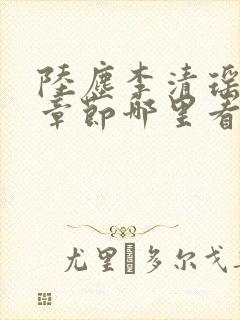 陸塵李清瑶
章節哪里看
尤里�多尔戈